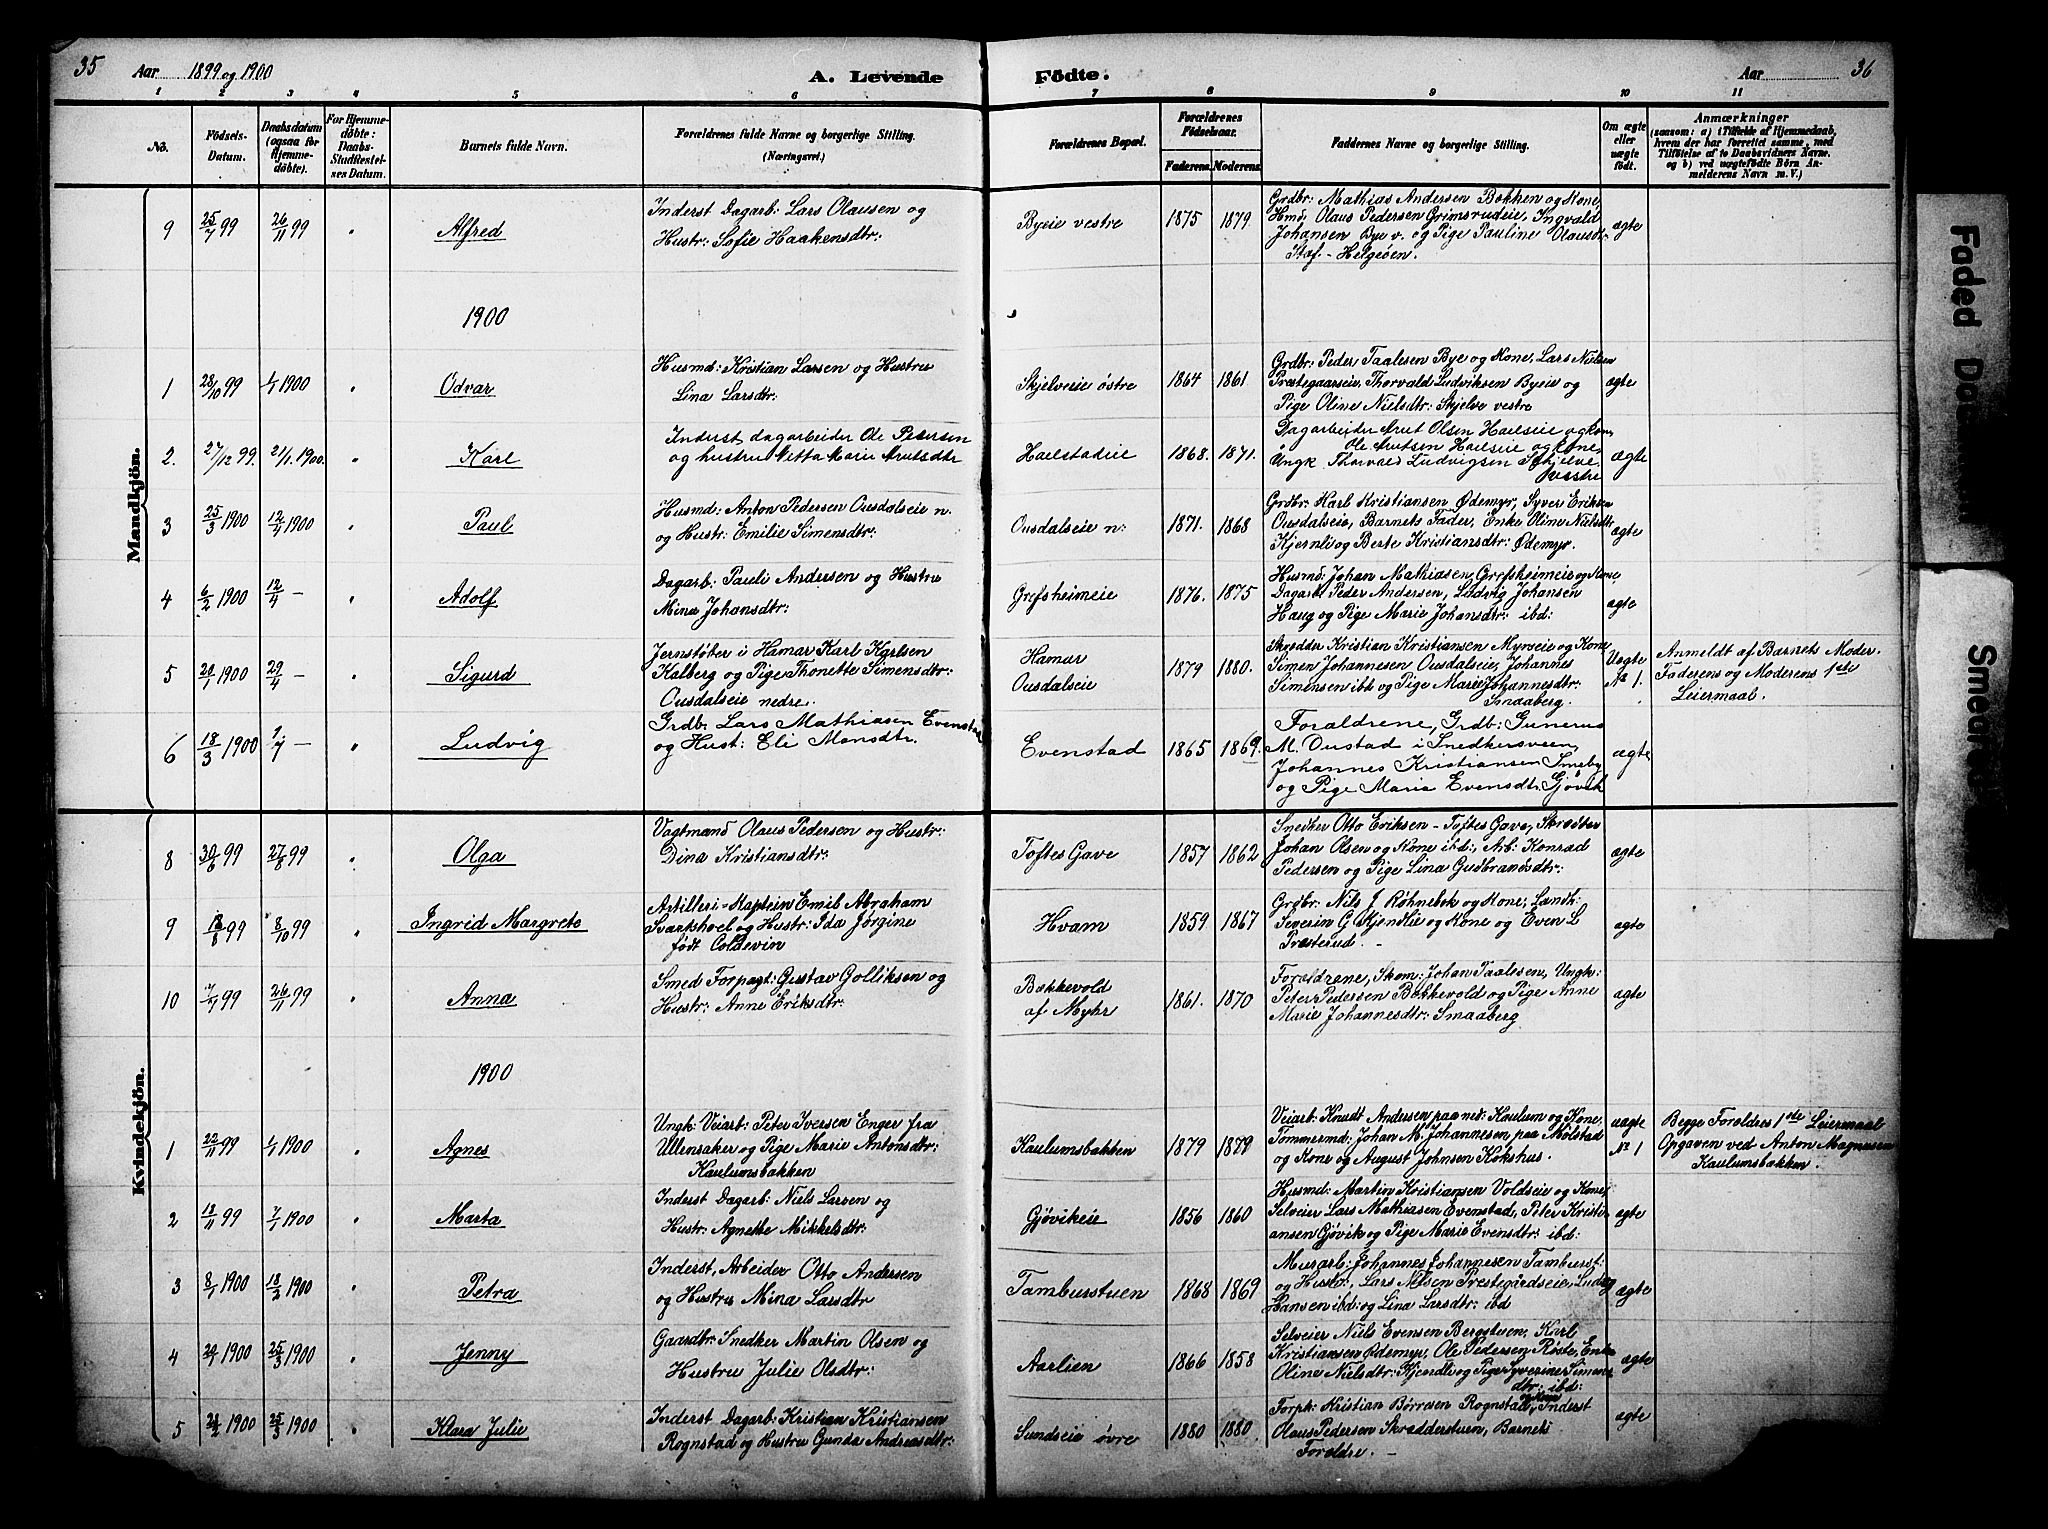 35 Aar 1899 og 1900 A. Levende Födte. Aar 36
1 2 3 4 5 6 7 8 9 10 11
No. Födsels-Datum. Daabsdatum (ogsaa for Hjemmedöbte). For Hjemmedöbte: Daabs-Stadfæstelses Datum. Barnets fulde Navn. Forældrenes fulde Navne og borgerlige Stilling. (Næringsvei.) Forældrenes Bopæl. Forældrenes Födselsaar. Faderens. Moderens. Faddernes Navne og borgerlige Stilling. Om ægte eller uægte födt. Anmærkninger (saasom: a) i Tilfælde af Hjemmedaab, hvem der har forrettet samme, med Tilföielse af to Daabsvidners Navne, og b) ved uægtefödte Börn Anmelderens Navn m. V.)
Mandkjön.
9 25/7 99 26/11 99 " Alfred
Inderst Dagarb: Lars Olausen og
Hustr: Sofie Haakensdtr:
Byeie vestre 1875 1879
Grdbr: Mathias Andersen Bakken og Kone,
Hmd: Olaus Pedersen Grimsrudeie, Ingvald
Johansen Bye v. og Pige Pauline Olausdtr
Staf - Helgeøen.
ægte
1900
1 28/10 99 1/1 1900 " Odvar
Husmd: Kristian Larsen og Hustru
Lina Larsdtr:
Skjelveie østre 1864 1861
Grdbr: Peder Taalesen Bye og Kone, Lars Nielsen
Præstegaarseie, Thorvald Ludviksen Byeie og
Pige Oline Nielsdtr: Skjelve vestre
ægte
2. 27/12 99. 21/1. 1900. " Karl
Inderst dagarbeider Ole Petersen
og hustru Netta Marie Arutsdtr
Haelstadeie 1868. 1871.
Dagarbeider Arut Olsen Haelseie og kone,
Ole Arutsen Haelseie og kone,
Ungk Thorvald Ludvigsen Skjelve
vestre
ægte
3 25/3 1900 12/4 1900 " Paul
Husmd: Anton Pedersen Ousdalseie n.
og Hustr: Emilie Simensdtr:
Ousdalseie n: 1871. 1868
Grdbr: Karl Kristiansen Ødemyr, Syver Eriksen
Ousdalseie, Barnets Fader, Enke Oline Nielsdtr
Kjernli og Berte Kristiansdtr: Ødemyr.
ægte
4 6/2 1900 12/4 - " Adolf
Dagarb: Pauli Andersen og Hustru
Mina Johansdtr:
Grefsheimeie 1876. 1875
Husmd: Johan Mathiasen, Grefsheimeie og Kone,
Dagarb: Peder Andersen, Ludvig Johansen
Haug og Pige Marie Johansdtr: ibd:
ægte
5 20/1 1900 29/4 - " Sigurd
Jernstøber i Hamar Karl Karlsen
Kalberg og Pige Thonette Simensdtr:
Ousdalseie nedre.
Hamar
Ousdalseie
1879 1880.
Skrædder Kristian Kristiansen Myrseie og Kone
Simen Johannesen Ousdalseie, Johannes
Simensen ibd: og Pige Marie Johannesdtr:
Smaaberg.
Uægte
No 1.
Anmeldt af Barnets Moder.
Faderens og Moderens 1ste
Leiermaal.
6 18/3 1900 1/7 - " Ludvig
Grdb: Lars Mathiasen Evenstad
og Hust: Eli Monsdtr.
Evenstad 1865 1869.
Forældrene, Grdb: Gunerus
M. Oustad i Snedkersveen,
Johannes Kristiansen Smeby
og Pige Marie Evensdtr. Gjøvik
ægte
Kvindekjön.
8 30/6 99 27/8 99 " Olga
Vagtmand Olaus Pedersen og Hustr:
Dina Kristiansdtr:
Toftes Gave 1857 1862
Snedker Otto Eriksen - Toftes Gave, Skrædder
Johan Olsen og Kone ibd:, Arb: Konrad
Pedersen og Pige Lina Gudbrandsdtr:
ægte
9 99 8/10 99 " Ingrid Margrete
Artilleri-Kaptein Emil Abraham
Svartshoel og Hustr: Ida Jørgine
født Coldevin
Hvam 1859 1867
Grdbr: Nils J Røhnebæk og Kone, Landh:
Severin G Skjendlie og Kone og Even L
Præsterud. -
ægte
10 99 26/11 99 " Anna
Smed Forpagt: Gustav Golliksen og
Hustr: Anne Eriksdtr:
Bækkevold
af Myhr
1861. 1870
Forældrene, Skom: Johan Taalesen, Ungk:
Peter Pedersen Bækkevold og Pige Anne
Marie Johannesdtr: Smaaberg
ægte
1900
1 22/11 99 1/1 1900 " Agnes
Ungk: Veiarb: Peter Iversen Enger fra
Ullensaker og Pige Marie Antonsdtr:
Kaulumsbakken
Kaulumsbakken 1879 1879
Veiarb: Knudt Andersen paa ned: Kaulum og Kone,
Tømmermd: Johan M. Johannesen paa Molstad
og Kone og August Johnsen Kokshus.
uægte
No 1
Begge Forældres 1ste Leiermaal
Opgaven ved Anton Magnusen
Kaulumsbakken.
2 18/11 99 7/1 1900 " Marta
Inderst Dagarb: Niels Larsen og
Hustr: Agnethe Mikkelsdtr:
Gjøvikeie 1856 1860
Husmd: Martin Kristiansen Voldseie og Kone,
Selveier Lars Mathiasen Evenstad, Peter Kristi-
ansen Gjøvik og Pige Marie Evensdtr: ibd:
ægte
3 8/1 1900 18/2 1900 " Petra
Inderst, Arbeider Otto Andersen
og Hustru Mina Larsdtr
Tamburstuen 1868 1869
Murarb: Johannes Johannesen Tamburst:
og Hustr:, Lars Nilsen Prestegårdseie, Ludvig
Hansen ibd: og Lina Larsdtr: ibd
ægte
4 20/1 1900 25/3 1900 " Jenny
Gaardbr: Snedker Martin Olsen og
Hustru Julie Olsdtr:
Aarlien 1866 1858
Selveier Niels Evensen Bergstuen, Karl
Kristiansen Ødemyr, Ole Pedersen Røste, Enke
Oline Nielsdtr: Kjendli og Pige Syverine Simens
dtr: ibd:
ægte
5 24/2 1900 25/3 1900 " Klara Julie
Inderst Dagarb: Kristian Kristiansen
Rognstad og Hustru Gunda Andreasdtr:
Sundseie øvre 1880 1880
Forpk: Kristian Børresen Rognstad og Kone, Inderst
Olaus Pedersen Skrædderstuen, Barnets
Forældre. -
ægte
Faded
Smeared